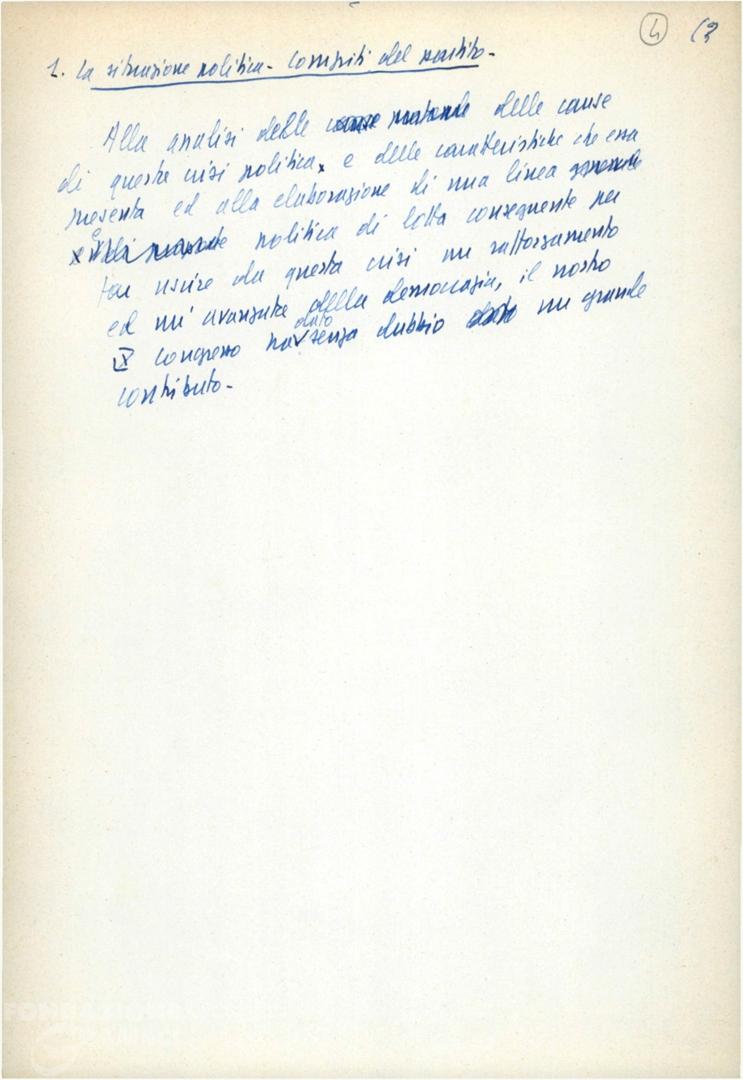 4 (2
1. La situazione politica - Compiti del partito -
Alla analisi delle cause delle cause
di questa crisi politica, e delle caratteristiche che essa
presenta ed alla elaborazione di una linea generale
e di politica di lotta conseguente per
far uscire da questa crisi un rafforzamento
ed un' avanzata della democrazia, il nostro
IX congresso ha dato senza dubbio dato un grande
contributo -
FONDAZIONE
GRAMSCI